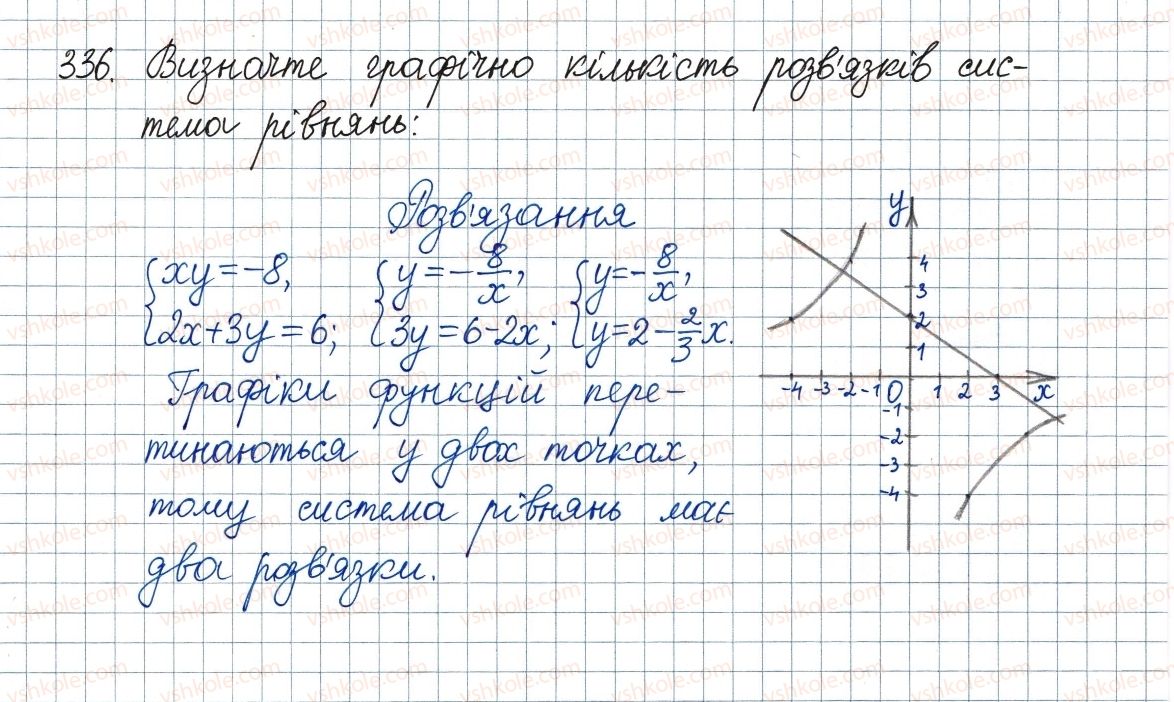 336. Визначте графічно кількість розв'язків сис-
тема рівнянь:
Розв'язання
{xy = -8, {y = -8/x, {y = -8/x,
{2x+3y = 6; {3y = 6-2x; {y = 2 - 2/3 x.
Графіки функцій пере-
тинаються у двох точках,
тому система рівнянь має
два розв'язки.
y
4
3
2
1
-4 -3 -2 -1 0 1 2 3 x
-1
-2
-3
-4
vshkole.com